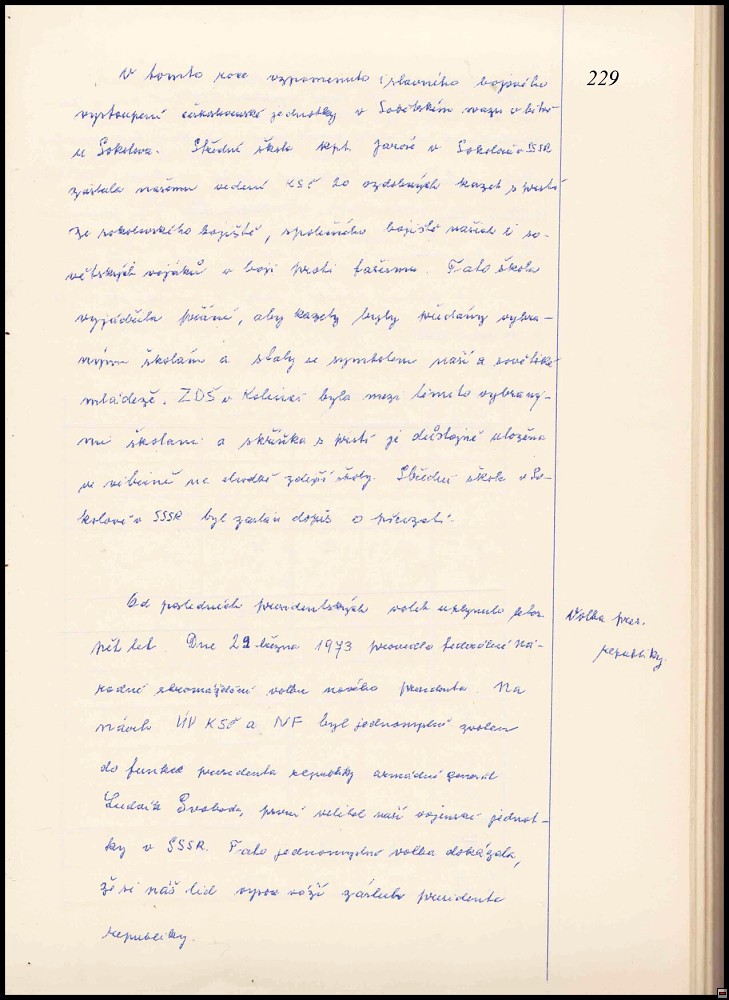 229
V tomto roce vzpomenuto i slavného bojového
vystoupení českoslovenké jednotky v Sovětském svazu v bitvě
u Sokolova. Střední škola kpt. Jaroše v Sokolově v SSSR
zaslala našemu vedení KSČ 20 ozdobných kazet s prstí
ze sokolovského bojiště, společného bojiště našich i so-
větských vojáků v boji proti fašismu. Tato škola
vyjádřila přání, aby kazety byly předány vybra-
ným školám a staly se symbolem naší a sovětské
mládeže. ZDŠ v Kolinci byla mezi těmito vybraný-
mi školami a skříňka s prstí je důstojně uložena
ve vitrině na chodbě zdejší školy. Střední škole v So-
kolově v SSSR byl zaslán dopis o převzetí.
Od posledních presidentských voleb uplynulo letos
pět let. Dne 22. března 1973 provedlo Federální Ná-
rodní shromáždění volbu nového presidenta. Na
návrh ÚV KSČ a NF byl jednomyslně zvolen
do funkce presidenta republiky armádní generál
Ludvík Svoboda, první velitel naší vojenské jednot-
ky v SSSR. Tato jednomyslná volba dokázala,
že si náš lid vysoce váží zásluh presidenta
republiky.
Volba pres.
republiky.